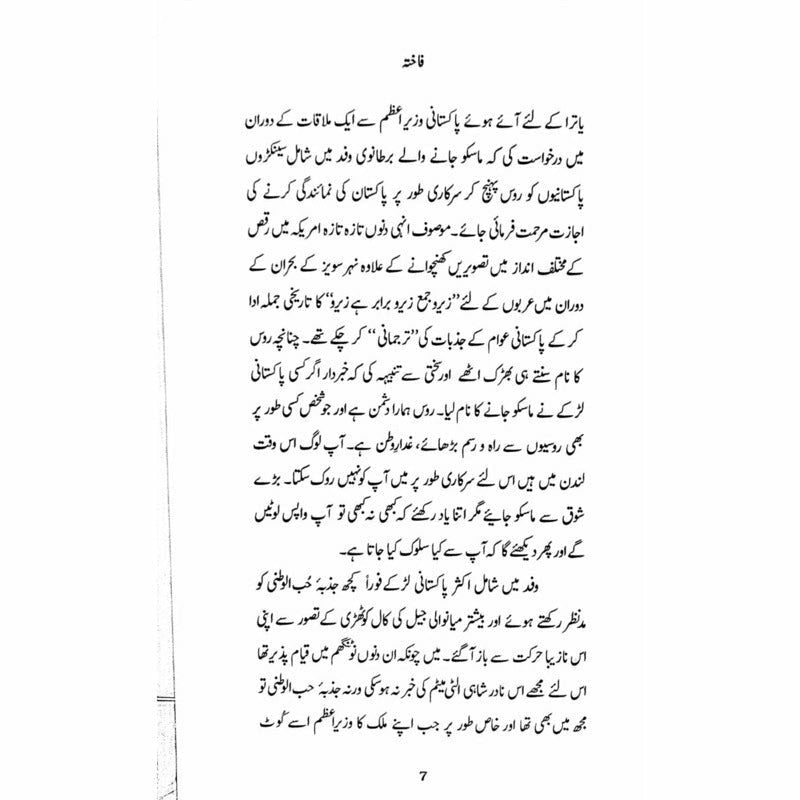 فاختہ
یاترا کے لئے آئے ہوئے پاکستانی وزیرِاعظم سے ایک ملاقات کے دوران
میں درخواست کی کہ ماسکو جانے والے برطانوی وفد میں شامل سینکڑوں
پاکستانیوں کو روس پہنچ کر سرکاری طور پر پاکستان کی نمائندگی کرنے کی
اجازت مرحمت فرمائی جائے۔موصوف انہی دنوں تازہ تازہ امریکہ میں رقص
کے مختلف انداز میں تصویریں کھنچوانے کے علاوہ نہر سویز کے بحران کے
دوران میں عربوں کے لئے ”زیرو جمع زیرو برابر ہے زیرو“ کا تاریخی جملہ ادا
کر کے پاکستانی عوام کے جذبات کی ”ترجمانی“ کر چکے تھے۔ چنانچہ روس
کا نام سنتے ہی بھڑک اٹھے اور سختی سے تنبیہہ کی کہ خبردار اگر کسی پاکستانی
لڑکے نے ماسکو جانے کا نام لیا۔ روس ہمارا دشمن ہے اور جو شخص کسی طور پر
بھی روسیوں سے راہ و رسم بڑھائے، غدارِ وطن ہے۔ آپ لوگ اس وقت
لندن میں ہیں اس لئے سرکاری طور پر میں آپ کو نہیں روک سکتا۔ بڑے
شوق سے ماسکو جائیے مگر اتنا یاد رکھئے کہ کبھی نہ کبھی تو آپ واپس لوٹیں
گے اور پھر دیکھئے گا کہ آپ سے کیا سلوک کیا جاتا ہے۔
وفد میں شامل اکثر پاکستانی لڑکے فوراً کچھ جذبۂ حُب الوطنی کو
مدنظر رکھتے ہوئے اور بیشتر میانوالی جیل کی کال کوٹھڑی کے تصور سے اپنی
اس نازیبا حرکت سے باز آگئے۔ میں چونکہ ان دنوں نوٹنگھم میں قیام پذیر تھا
اس لئے مجھے اس نادر شاہی الٹی میٹم کی خبر نہ ہوسکی ورنہ جذبۂ حب الوطنی تو
مجھ میں بھی تھا اور خاص طور پر جب اپنے ملک کا وزیرِاعظم اسے کُوٹ
7